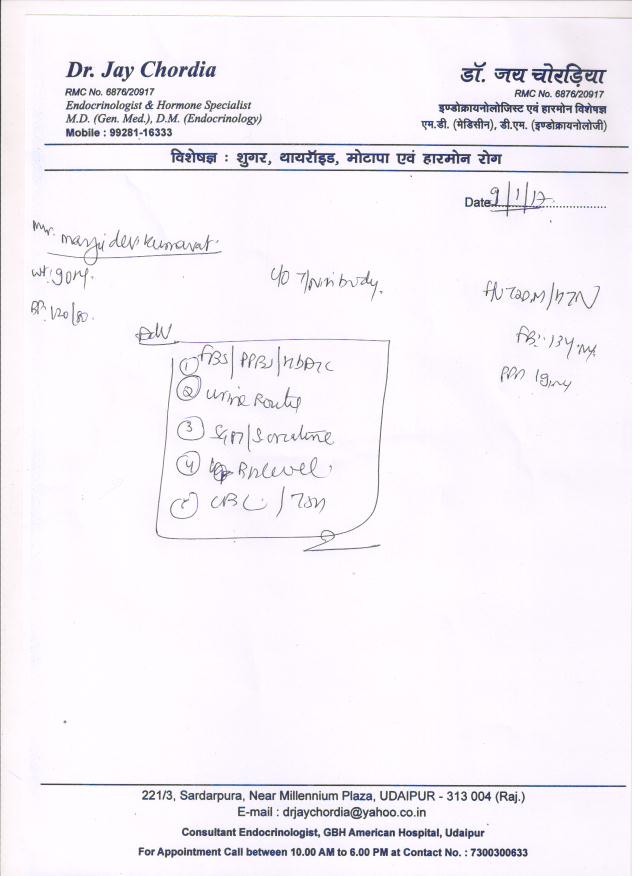 Dr. Jay Chordia
RMC No. 6876/20917
Endocrinologist & Hormone Specialist
M.D. (Gen. Med.), D.M. (Endocrinology)
Mobile : 99281-16333
डॉ. जय चोरड़िया
RMC No. 6876/20917
इण्डोक्रायनोलोजिस्ट एवं हारमोन विशेषज्ञ
एम.डी. (मेडिसीन), डी.एम. (इण्डोक्रायनोलोजी)
विशेषज्ञ : शुगर, थायरॉइड, मोटापा एवं हारमोन रोग
Date 9/1/17
devi kumavat
wt: 90
c/o body.
BP: 120/80.
Adv
① FBS/PPBS/HbA1c
② urine Routine
③ /S. creatinine
④ level
⑤ CBC / TSH
221/3, Sardarpura, Near Millennium Plaza, UDAIPUR - 313 004 (Raj.)
E-mail : drjaychordia@yahoo.co.in
Consultant Endocrinologist, GBH American Hospital, Udaipur
For Appointment Call between 10.00 AM to 6.00 PM at Contact No. : 7300300633